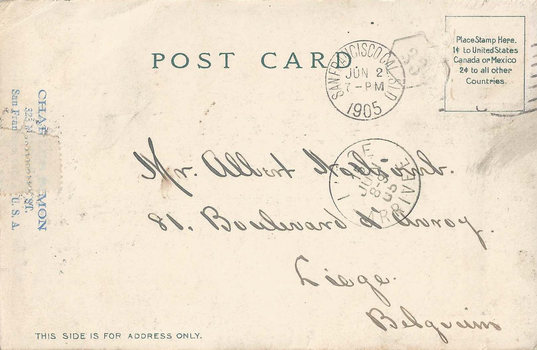 POST CARD
Place Stamp Here.
1¢ to United States
Canada or Mexico
2¢ to all other
Countries.
SAN FRANCISCO, CAL.
JUN 2
7-PM
1905
Mr. Albert
LIEGE
ARRIVEE
81. Boulevard d'Avroy.
Liege.
Belguim
CHA MON
325 ST
San Fran
U. S. A
THIS SIDE IS FOR ADDRESS ONLY.